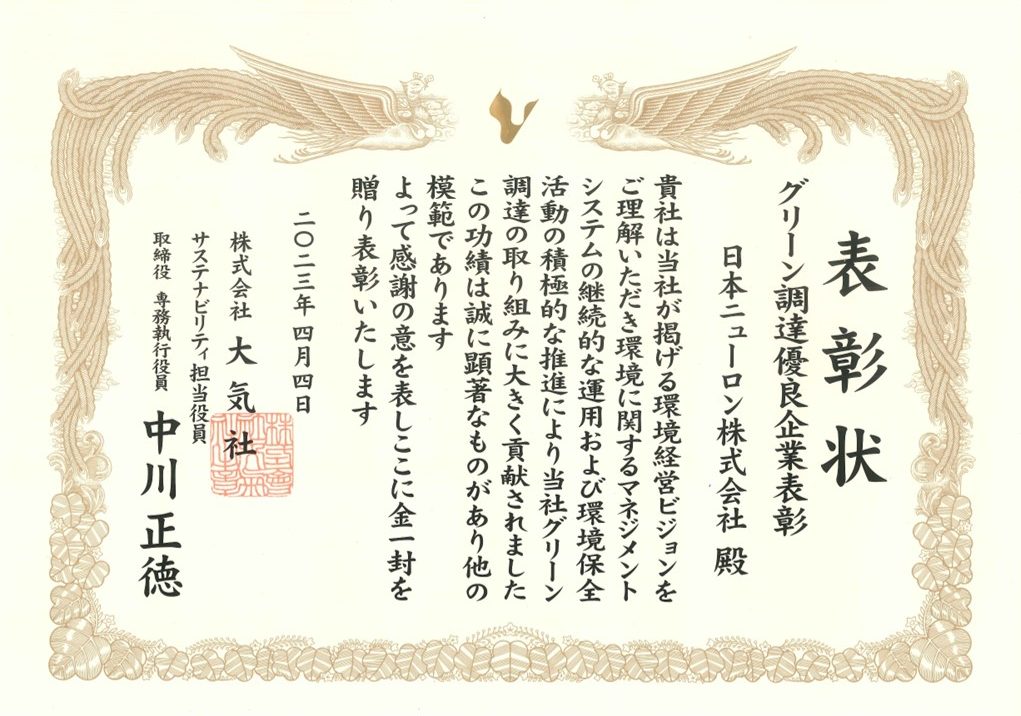 表彰状
グリーン調達優良企業表彰
日本ニューロン株式会社 殿
貴社は当社が掲げる環境経営ビジョンを
ご理解いただき環境に関するマネジメント
システムの継続的な運用および環境保全
活動の積極的な推進により当社グリーン
調達の取り組みに大きく貢献されました
この功績は誠に顕著なものがあり他の
模範であります
よって感謝の意を表しここに金一封を
贈り表彰いたします
二〇二三年 四月四日
株式会社 大気社
サステナビリティ担当役員
取締役 専務執行役員 中川正徳